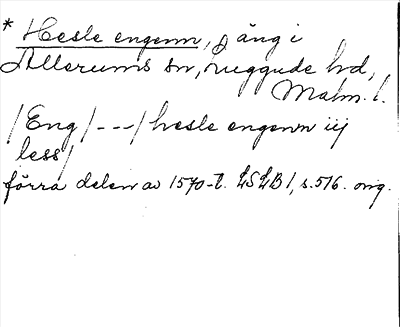 * Hesle engenn, äng i
Allerums sn, Luggude hd,
Malm. l.
/Eng/---/hesle engenn iij
less/
förra delen av 1570-t. LSLB 1, s. 516. orig.